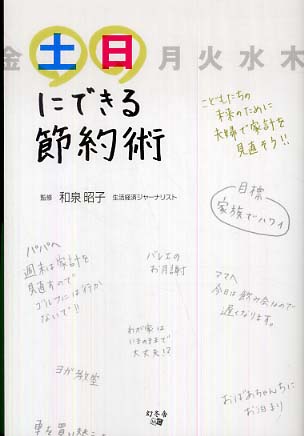 金土日月火水木
にできる
節約術
監修 和泉昭子 生活経済ジャーナリスト
こどもたちの
未来のために
夫婦で家計を
見直そう!!
目標
家族でハワイ
パパへ
週末は家計を
見直すので
ゴルフには行か
ないで!!
バレエの
お月謝
ママへ
今日は飲み会なので
遅くなります。
わが家は
いまのままで
大丈夫!?
ヨガ教室
おばあちゃんちに
お泊まり
車を買い替え
幻冬舎